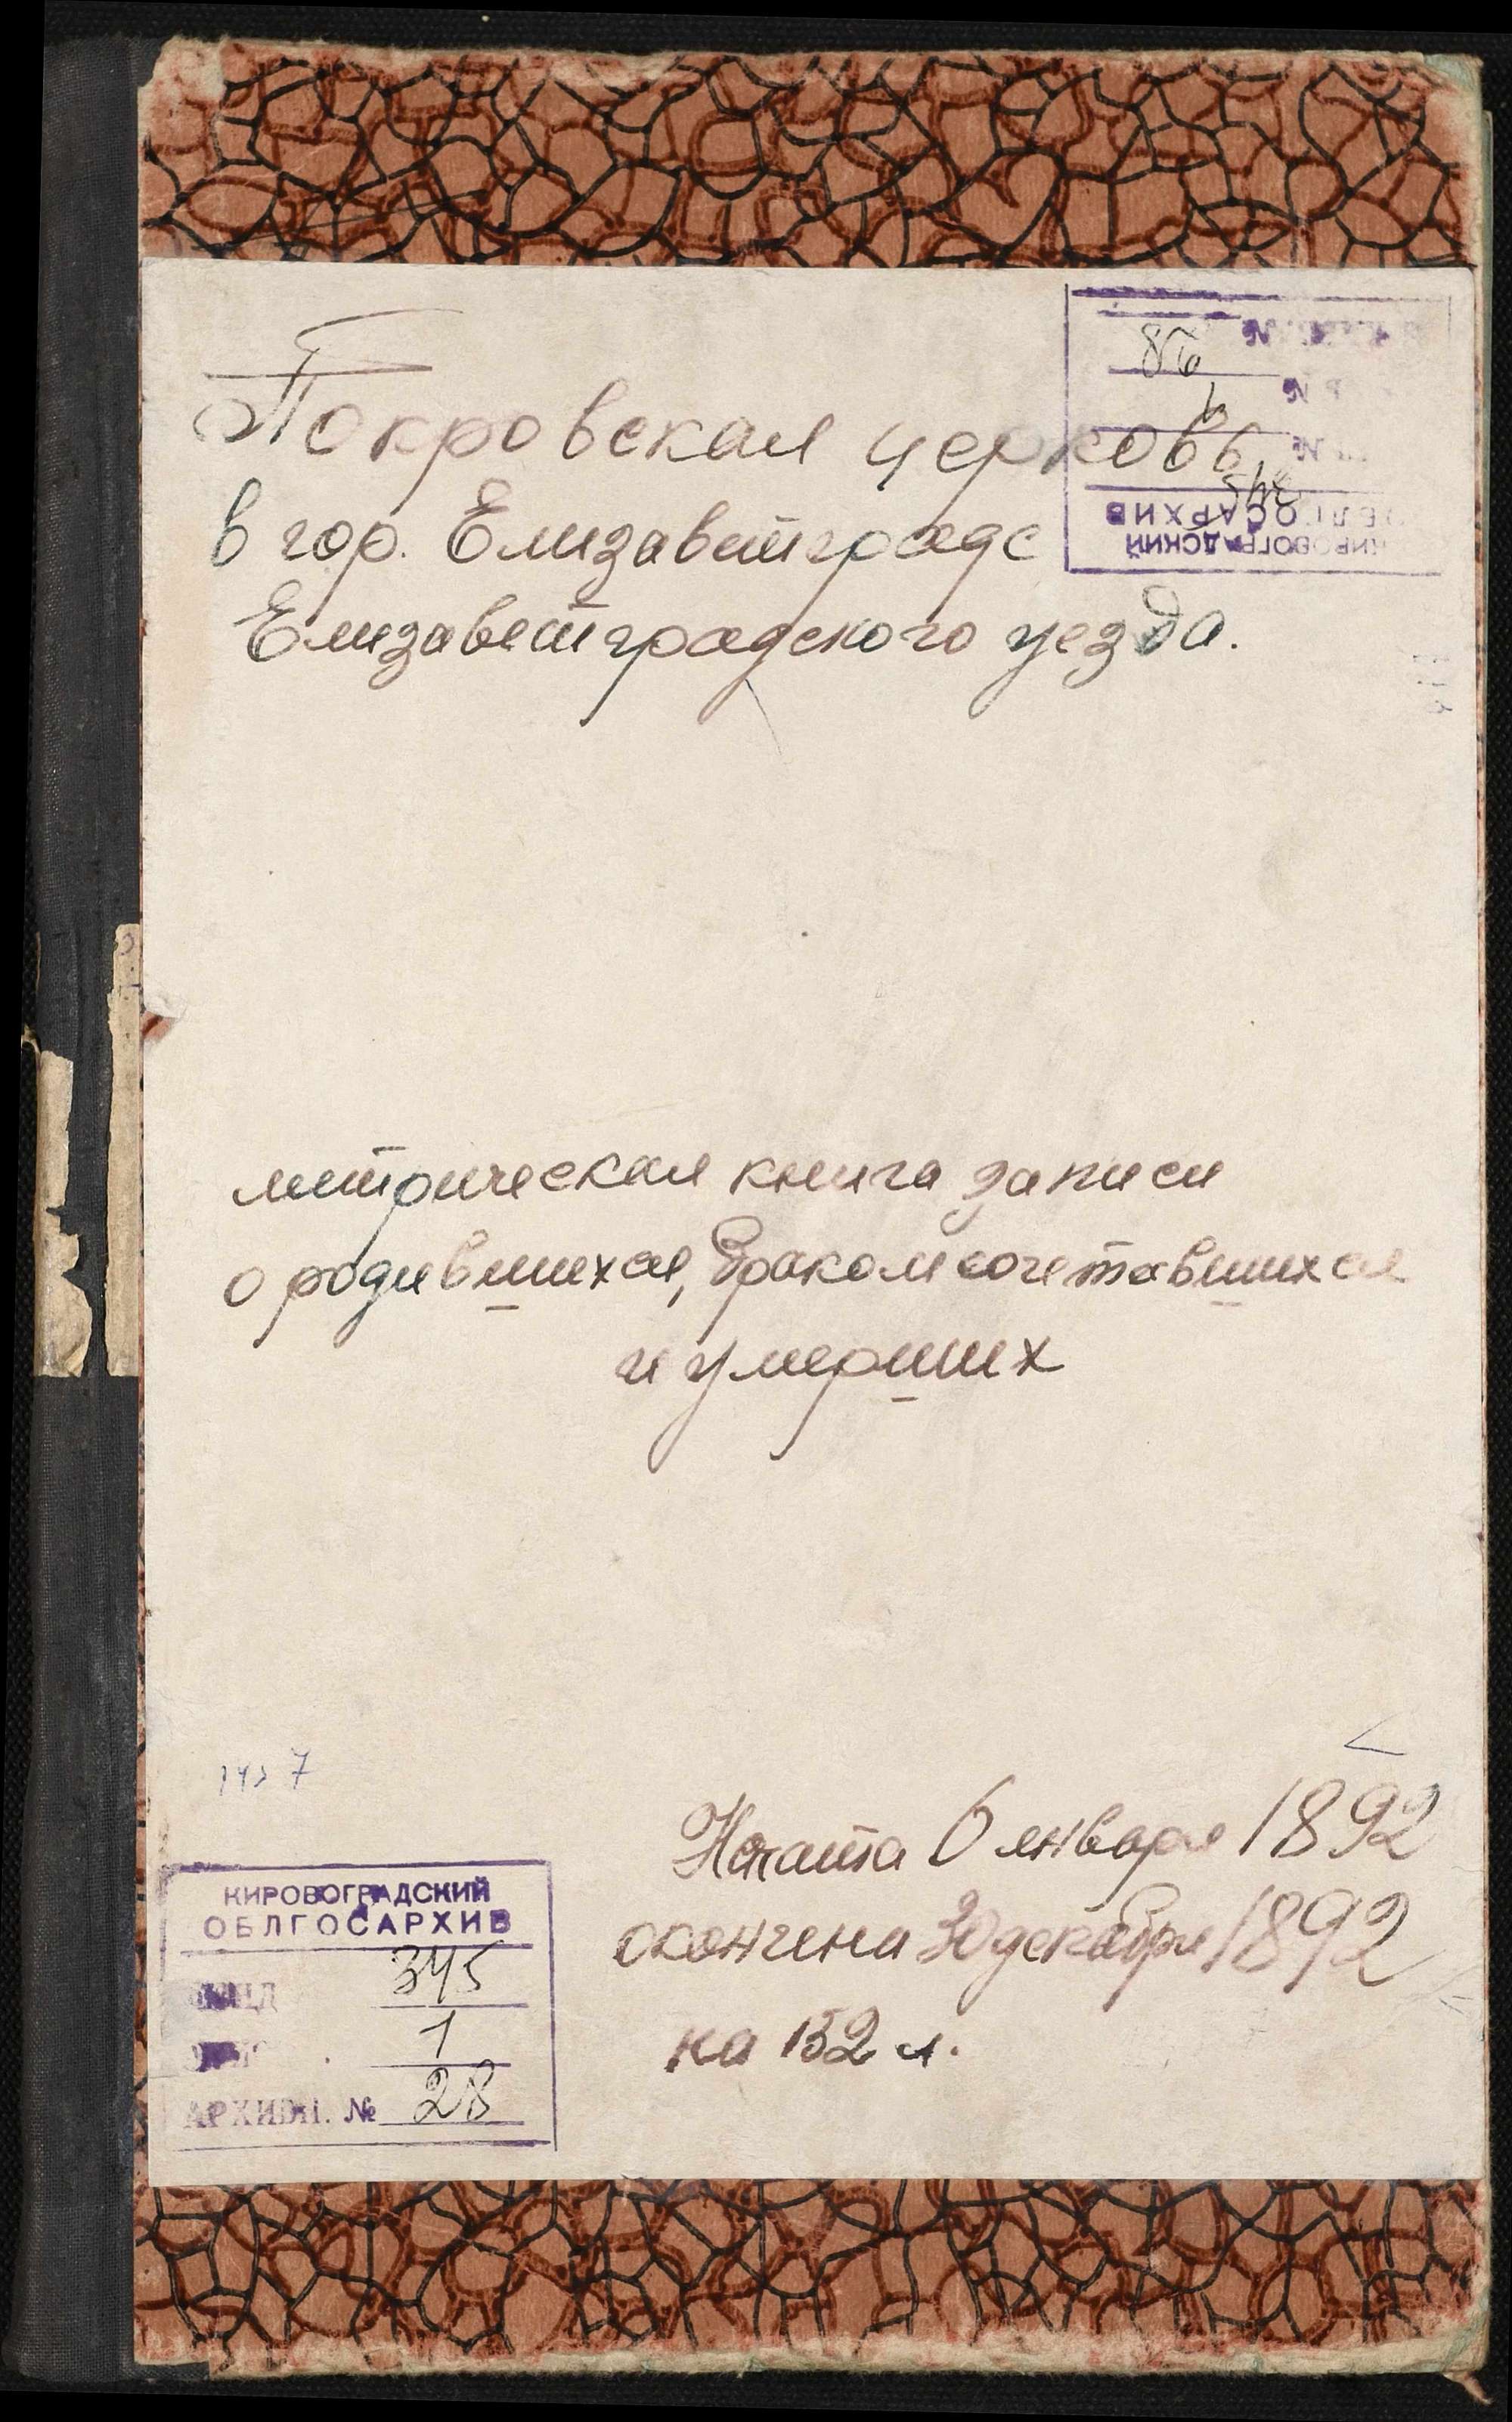 Покровская церковь
в гор. Елизаветграде
Елизаветградского уезда.
КИРОВОГРАДСКИЙ
ОБЛГОСАРХИВ
345
1
метрическая книга записи
о родившихся, браком сочетавшихся
и умерших
Начата 6 января 1892
окончена 30 декабря 1892
на 152 л.
КИРОВОГРАДСКИЙ
ОБЛГОСАРХИВ
ФОНД 345
1
АРХИВН. № 28